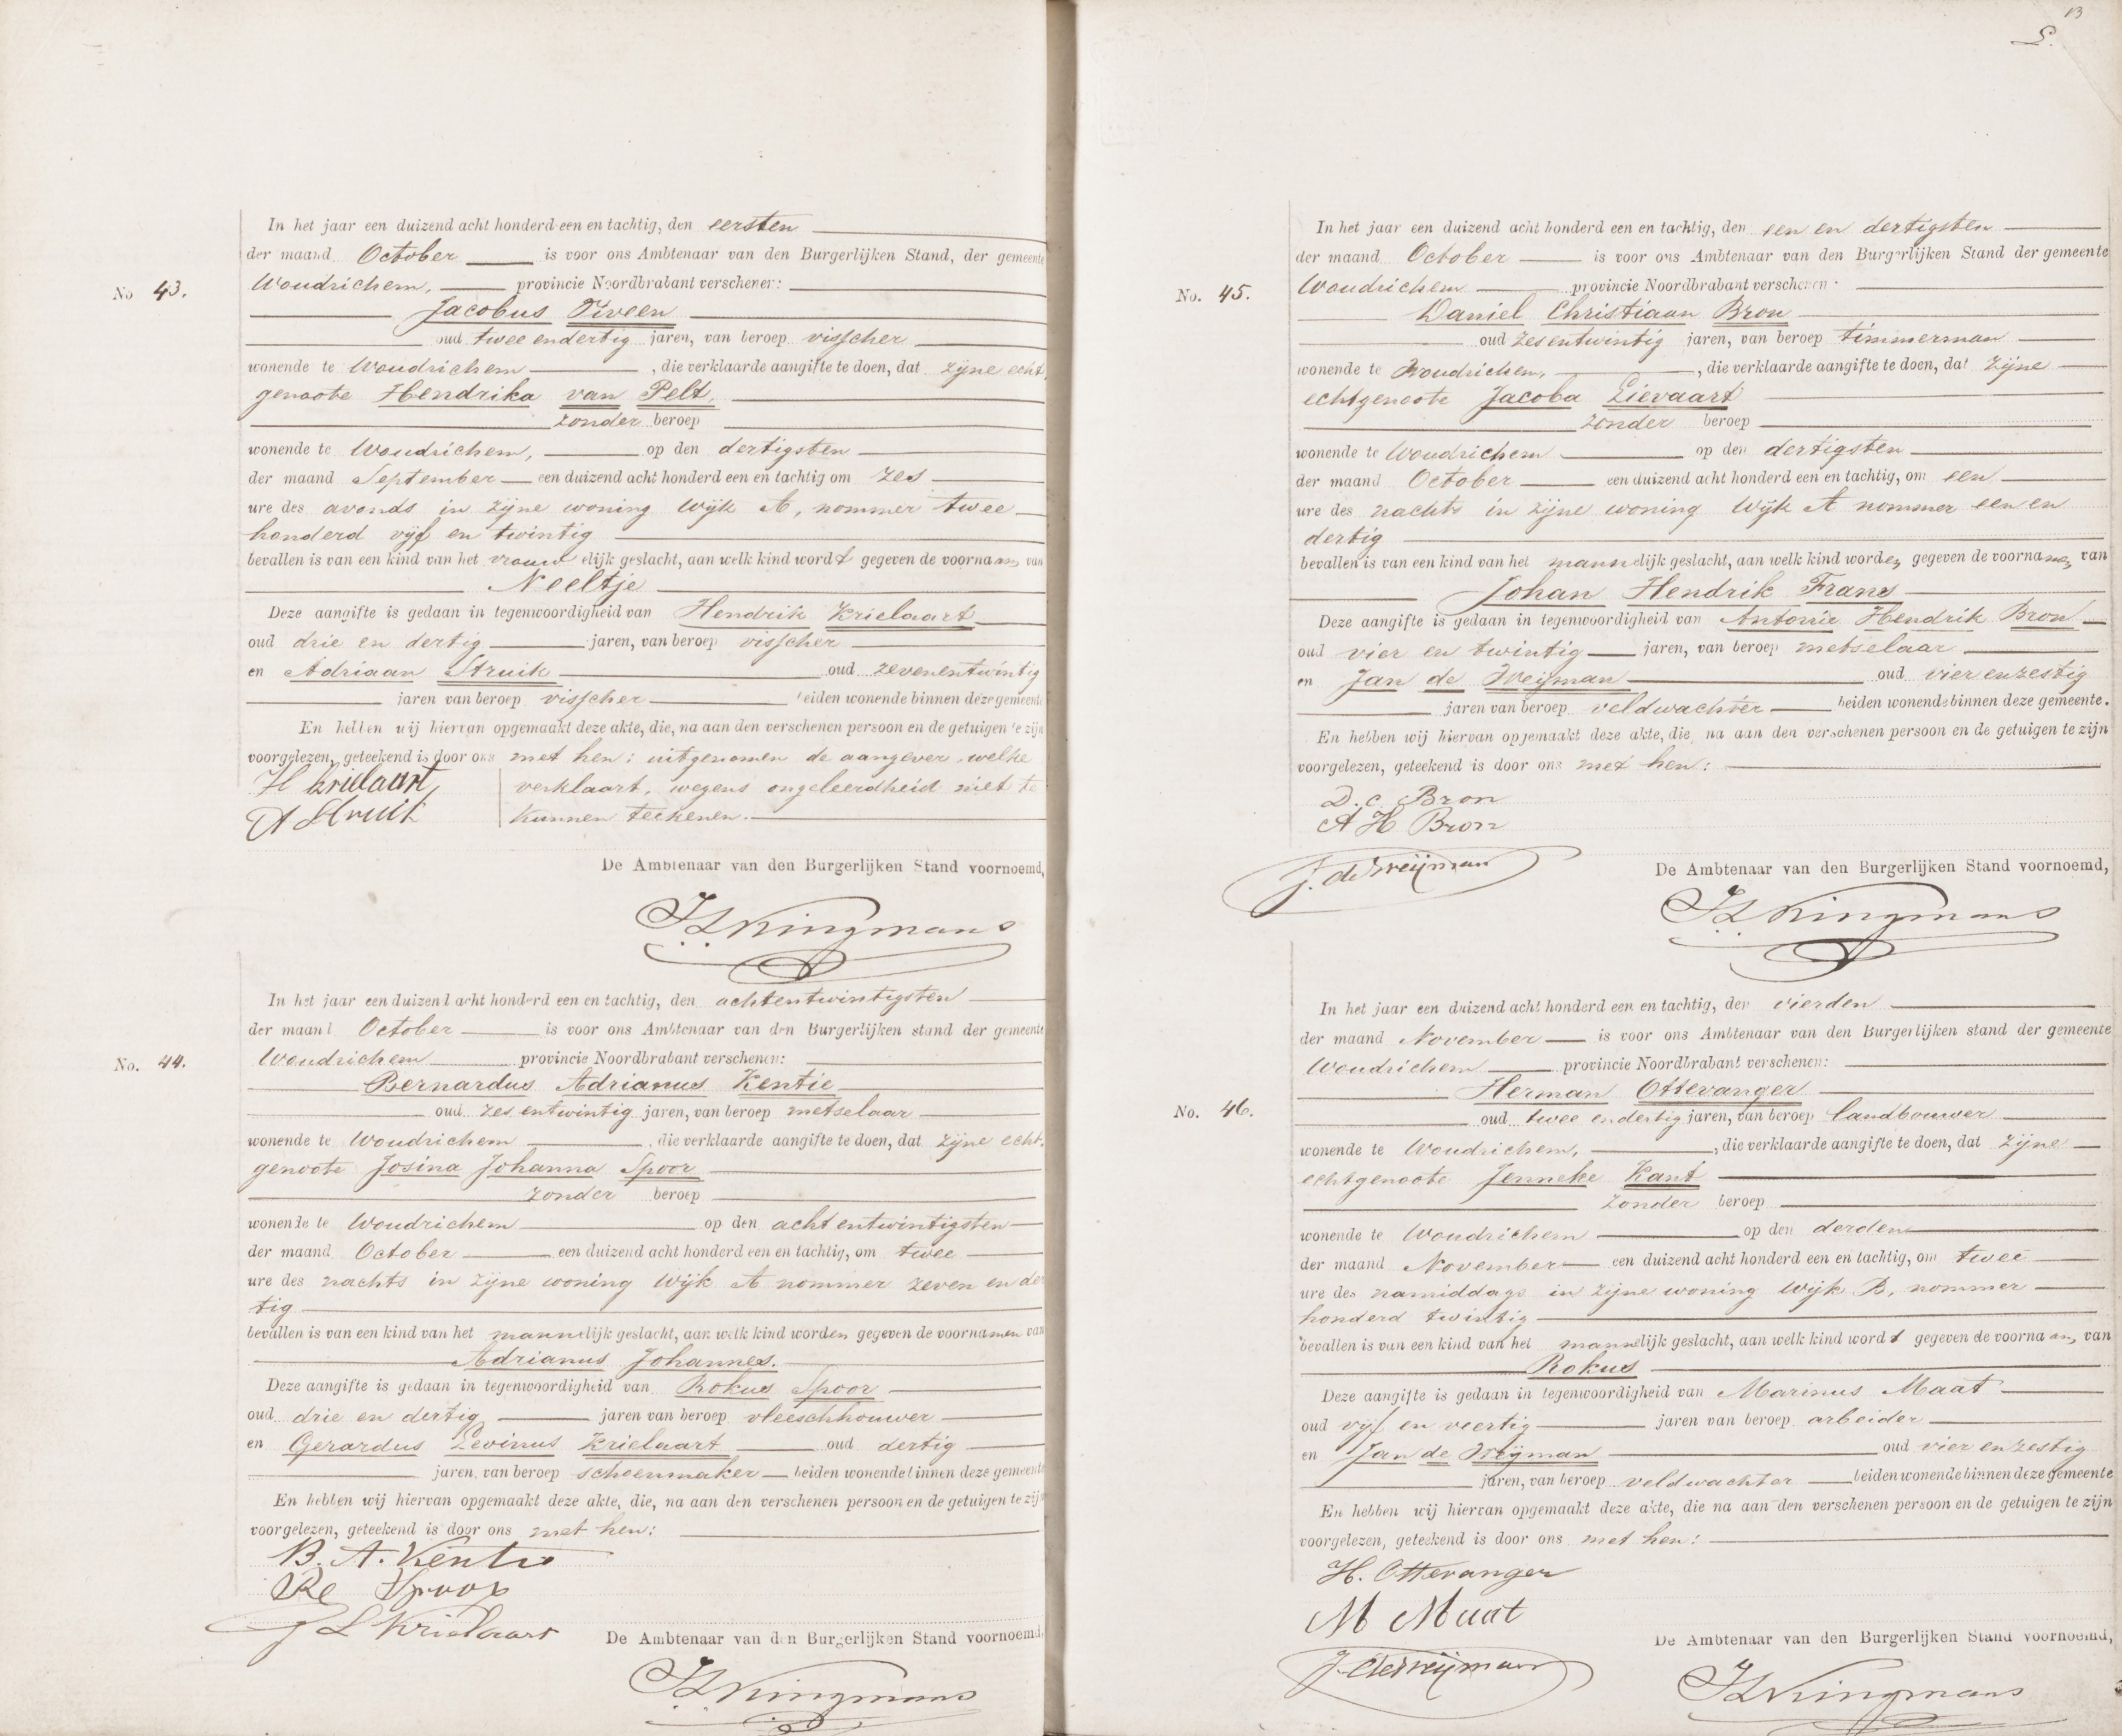 No 43.
In het jaar een duizend acht honderd een en tachtig, den eersten
der maand October is voor ons Ambtenaar van den Burgerlijken Stand, der gemeente
Woudrichem, provincie Noordbrabant verschenen:
Jacobus Viveen
oud twee endertig jaren, van beroep visscher
wonende te Woudrichem, die verklaarde aangifte te doen, dat zijne echt
genoote Hendrika van Pelt,
zonder beroep
wonende te Woudrichem, op den dertigsten
der maand September een duizend acht honderd een en tachtig om zes
ure des avonds in zijne woning Wijk A, nommer twee
honderd vijf en twintig
bevallen is van een kind van het vrouwelijk geslacht, aan welk kind wordt gegeven de voornaam van
Neeltje
Deze aangifte is gedaan in tegenwoordigheid van Hendrik Krielaart
oud drie en dertig jaren, van beroep visscher
en Adriaan Struik oud zevenentwintig
jaren van beroep visscher beiden wonende binnen deze gemeente
En hebben wij hiervan opgemaakt deze akte, die, na aan den verschenen persoon en de getuigen te zijn
voorgelezen, geteekend is door ons met hen; uitgenomen de aangever, welke
verklaart, wegens ongeleerdheid niet te
kunnen teekenen.
H Krielaart
A Struik
De Ambtenaar van den Burgerlijken Stand voornoemd,
Kingmans
No. 44.
In het jaar een duizend acht honderd een en tachtig, den achtentwintigsten
der maand October is voor ons Ambtenaar van den Burgerlijken stand der gemeente
Woudrichem provincie Noordbrabant verschenen:
Bernardus Adrianus Kentie
oud zes entwintig jaren, van beroep metselaar
wonende te Woudrichem, die verklaarde aangifte te doen, dat zijne echt.
genoote Josina Johanna Spoor
zonder beroep
wonende te Woudrichem op den acht entwintigsten
der maand October een duizend acht honderd een en tachtig, om twee
ure des nachts in zijne woning Wijk A nommer zeven en der
tig
bevallen is van een kind van het mannelijk geslacht, aan welk kind worden gegeven de voornamen van
Adrianus Johannes.
Deze aangifte is gedaan in tegenwoordigheid van Rokus Spoor
oud drie en dertig jaren van beroep vleeschhouwer
en Gerardus Levinus Krielaart oud dertig
jaren, van beroep schoenmaker beiden wonende binnen deze gemeente
En hebben wij hiervan opgemaakt deze akte, die, na aan den verschenen persoon en de getuigen te zijn
voorgelezen, geteekend is door ons met hen:
B. A. Kentie
Spoor
L Krielaart
De Ambtenaar van den Burgerlijken Stand voornoemd,
Kingmans
13
No. 45.
In het jaar een duizend acht honderd een en tachtig, den een en dertigsten
der maand October is voor ons Ambtenaar van den Burgerlijken Stand der gemeente
Woudrichem provincie Noordbrabant verschenen:
Daniel Christiaan Bron
oud zes entwintig jaren, van beroep timmerman
wonende te Woudrichem, die verklaarde aangifte te doen, dat zijne
echtgenoote Jacoba Lievaart
zonder beroep
wonende te Woudrichem op den dertigsten
der maand October een duizend acht honderd een en tachtig, om een
ure des nachts in zijne woning Wijk A nommer een en
dertig
bevallen is van een kind van het mannelijk geslacht, aan welk kind worden gegeven de voornamen van
Johan Hendrik Frans
Deze aangifte is gedaan in tegenwoordigheid van Antonie Hendrik Bron
oud vier en twintig jaren, van beroep metselaar
en Jan de Weijman oud vier enzestig
jaren van beroep veldwachter beiden wonende binnen deze gemeente.
En hebben wij hiervan opgemaakt deze akte, die, na aan den verschenen persoon en de getuigen te zijn
voorgelezen, geteekend is door ons met hen:
D. C. Bron
A H Bron
J. de Weijman
De Ambtenaar van den Burgerlijken Stand voornoemd,
Kingmans
No. 46.
In het jaar een duizend acht honderd een en tachtig, den vierden
der maand November is voor ons Ambtenaar van den Burgerlijken stand der gemeente
Woudrichem provincie Noordbrabant verschenen:
Herman Ottevanger
oud twee endertig jaren, van beroep landbouwer
wonende te Woudrichem, die verklaarde aangifte te doen, dat zijne
echtgenoote Jenneke Kant
zonder beroep
wonende te Woudrichem op den derden
der maand November een duizend acht honderd een en tachtig, om twee
ure des namiddags in zijne woning Wijk B, nommer
honderd twintig
bevallen is van een kind van het mannelijk geslacht, aan welk kind wordt gegeven de voornaam van
Rokus
Deze aangifte is gedaan in tegenwoordigheid van Marinus Maat
oud vijf en veertig jaren van beroep arbeider
en Jan de Weijman oud vier enzestig
jaren, van beroep veldwachter beiden wonende binnen deze gemeente
En hebben wij hiervan opgemaakt deze akte, die na aan den verschenen persoon en de getuigen te zijn
voorgelezen, geteekend is door ons met hen:
H. Ottevanger
M Maat
J. de Weijman
De Ambtenaar van den Burgerlijken Stand voornoemd,
Kingmans